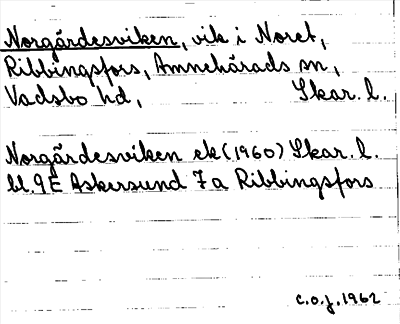 Norgårdesviken, vik i Noret,
Ribbingsfors, Amnehärads sn,
Vadsbo hd, Skar. l.
Norgårdesviken ek (1960) Skar. l.
bl. 9E Askersund 7a Ribbingsfors
c.o.j. 1962